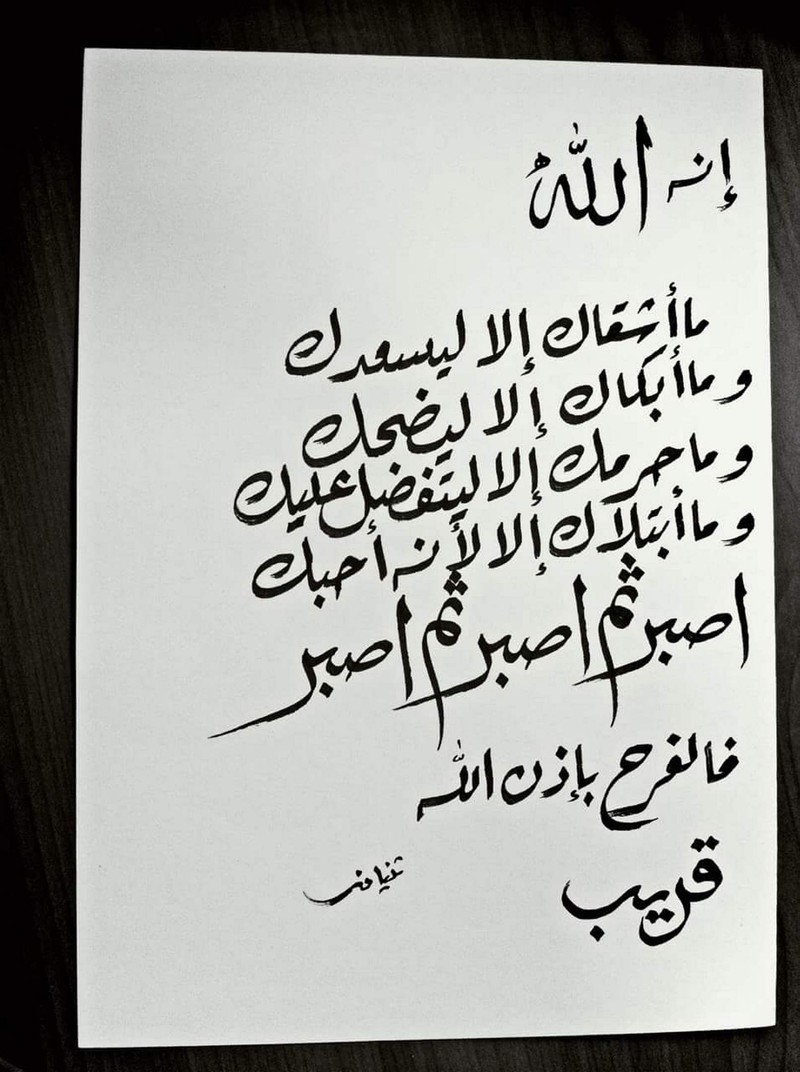 إنه اللهُ
ما أشقاك إلا ليسعدك
و ما أبكاك إلا ليضحك
و ما حرمك إلا ليتفضل عليك
و ما أبتلاك إلا لأنه أحبك
اصبر ثم اصبر ثم اصبر
فالفرح بإذن الله
قريب